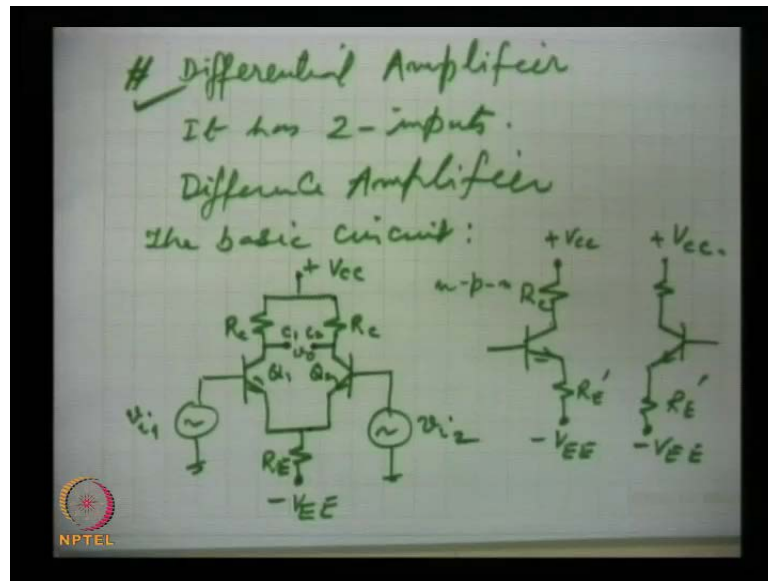 # Differential Amplifier
It has 2-inputs.
Difference Amplifier
The basic circuit:
+ Vcc
Rc
C1
C2
Rc
vo
Q1
Q2
vi1
vi2
RE
- VEE
n-p-n
+ Vcc
Rc
RE'
- VEE
+ Vcc.
RE'
- VEE
NPTEL